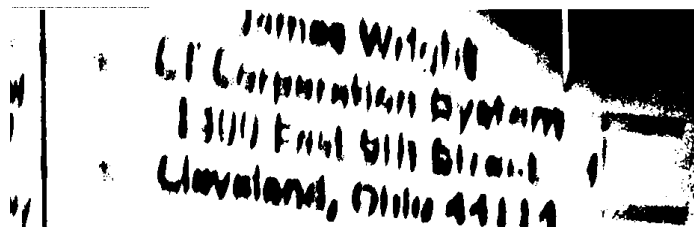 James Wright
CT Corporation System
1300 East 9th Street
Cleveland, Ohio 44114